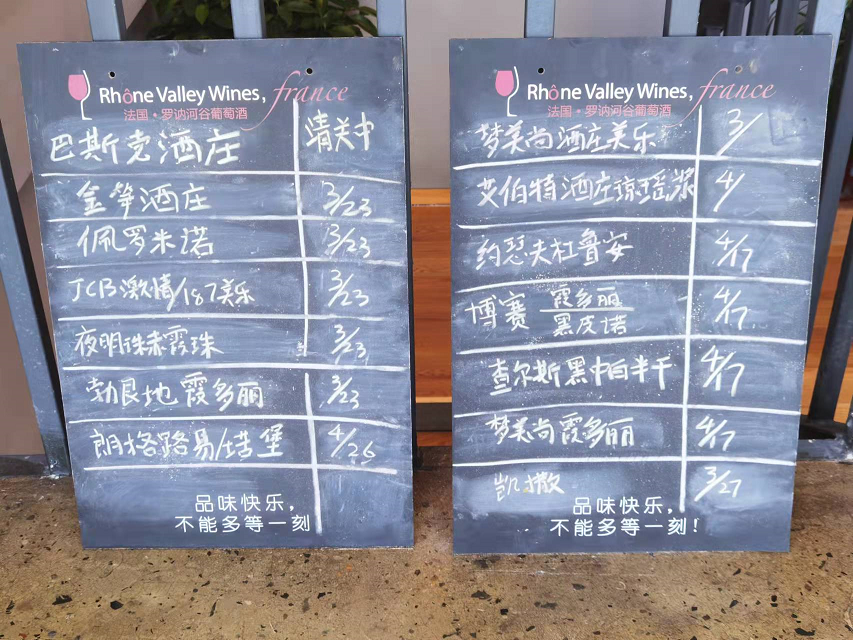 Rhône Valley Wines, france
法国·罗讷河谷葡萄酒
巴斯克酒庄 清关中
金笋酒庄 3/23
佩罗米诺 3/23
JCB激情/187美乐 3/23
夜明珠赤霞珠 3/23
勃艮地霞多丽 3/23
朗格路易/塔堡 4/26
品味快乐,
不能多等一刻
Rhône Valley Wines, france
法国·罗讷河谷葡萄酒
梦美尚酒庄美乐 3/
艾伯特酒庄琼瑶浆 4/
约瑟夫杜鲁安 4/17
博赛 霞多丽 4/7
黑皮诺
查尔斯黑中白半干 4/7
梦美尚霞多丽 4/7
凯撒 3/27
品味快乐,
不能多等一刻!